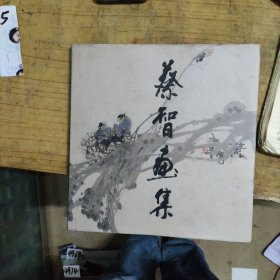 蔡智画集
5